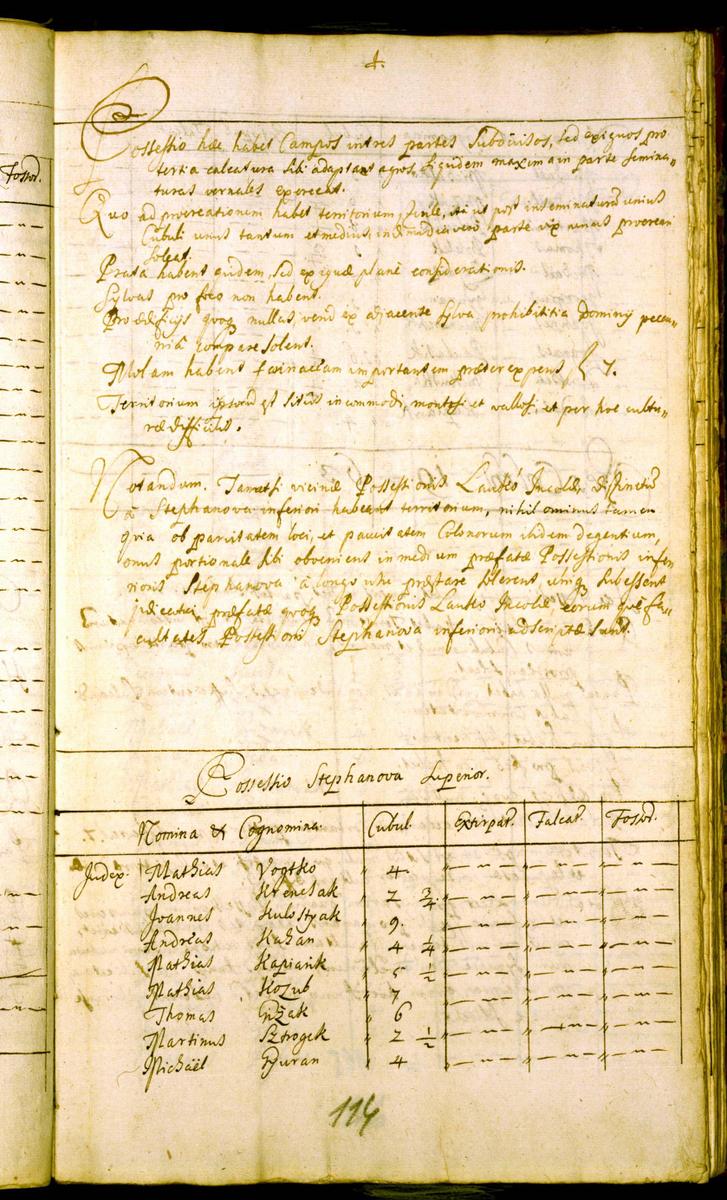 4.
Possessio hæc habet Campos in tres partes Subdivisos, sed exiguos pro
tertia calcatura sibi adaptant agros, siquidem maximam in parte semina„
turas vernales exercent.
Quo ad procreationem habet territorium sterile, ita ut post inseminaturam unius
Cubuli unus tantum et medius, in dimidia vero parte vix unus procreari
soleat.
Prata habent quidem, sed exiguæ planè considerationis.
Sylvas pro foco non habent.
Pro ædificijs quoq nullas, verum ex adjacente sylva prohibititia Dominij pecu„
niâ comparare solent.
Molam habent farinaceam importantem præter expens f 7.
Territorium ipsorum est sitûs incommodi, montosi et vallosi, et per hoc cultu„
ræ difficilis.
Notandum. Tametsi vicinæ Possessionis Lautko Jacobæ distinctum
â Stephanova inferiori habeant territorium, nihil ominus tamen
quia ob parvitatem loci, et paucitatem Colonorum ibidem degentium,
onus portionale sibi obveniens in medium præfatæ Possessionis infe„
rioris Stephanova â longo usu præstare solerent, uniq subessent
judicatui, præfatæ quoq Possessionis Lautko Jacobæ eorumque fa„
cultates Possessioni Stephanova inferiori adscriptæ sunt.
Possessio Stephanova Superior.
Nomina & Cognomina. Cubul. Extirpat. Falcat. Fossor.
Judex Mathias Vogtko „ 4. „ — „ — „ —
Andreas Krencsak „ 2 3/4 „ — „ — „ —
Joannes Hulostyak „ 9. „ — „ — „ —
Andreas Kahan „ 4 1/4 „ — „ — „ —
Mathias Kapiarik „ 5 1/2 „ — „ — „ —
Mathias Kozub „ 7 „ — „ — „ —
Thomas Gužak „ 6 „ — „ — „ —
Martinus Sztrogek „ 2 1/2 „ — „ — „ —
Michaël Gyuran „ 4 „ — „ — „ —
114
Fossor.